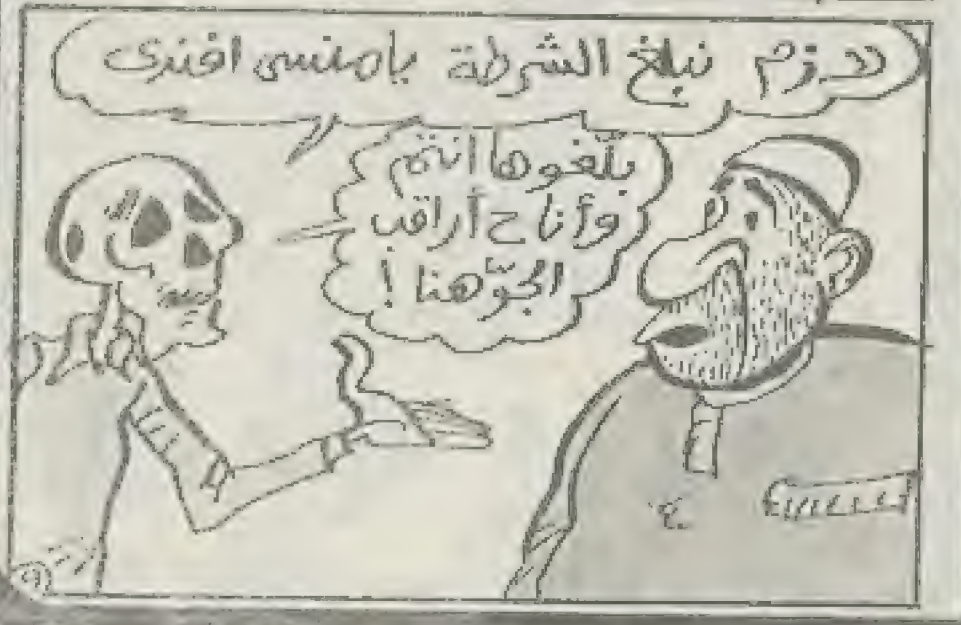 لازم نبلغ الشرطة يا منسى افندى
بلّغوها انتم
وأنا ح أراقب
الجوّ هنا !
٩